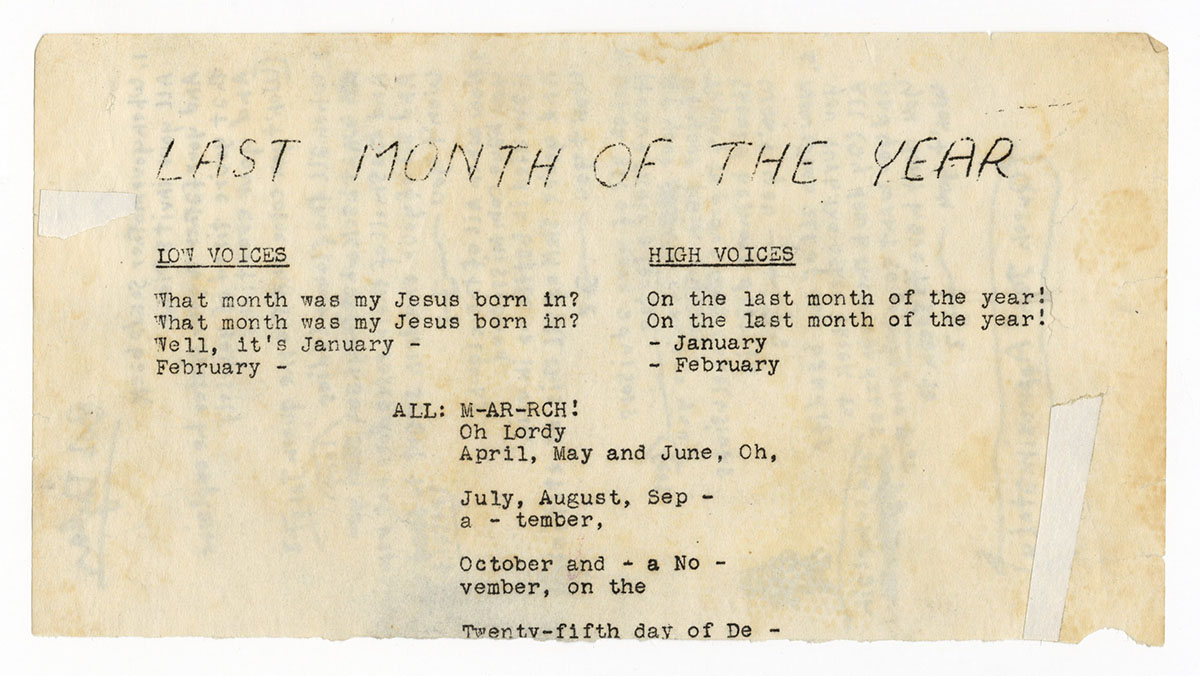 LAST MONTH OF THE YEAR
LOW VOICES
What month was my Jesus born in?
What month was my Jesus born in?
Well, it's January -
February -
HIGH VOICES
On the last month of the year!
On the last month of the year!
- January
- February
ALL: M-AR-RCH!
Oh Lordy
April, May and June, Oh,
July, August, Sep -
a - tember,
October and - a No -
vember, on the
Twenty-fifth day of De -